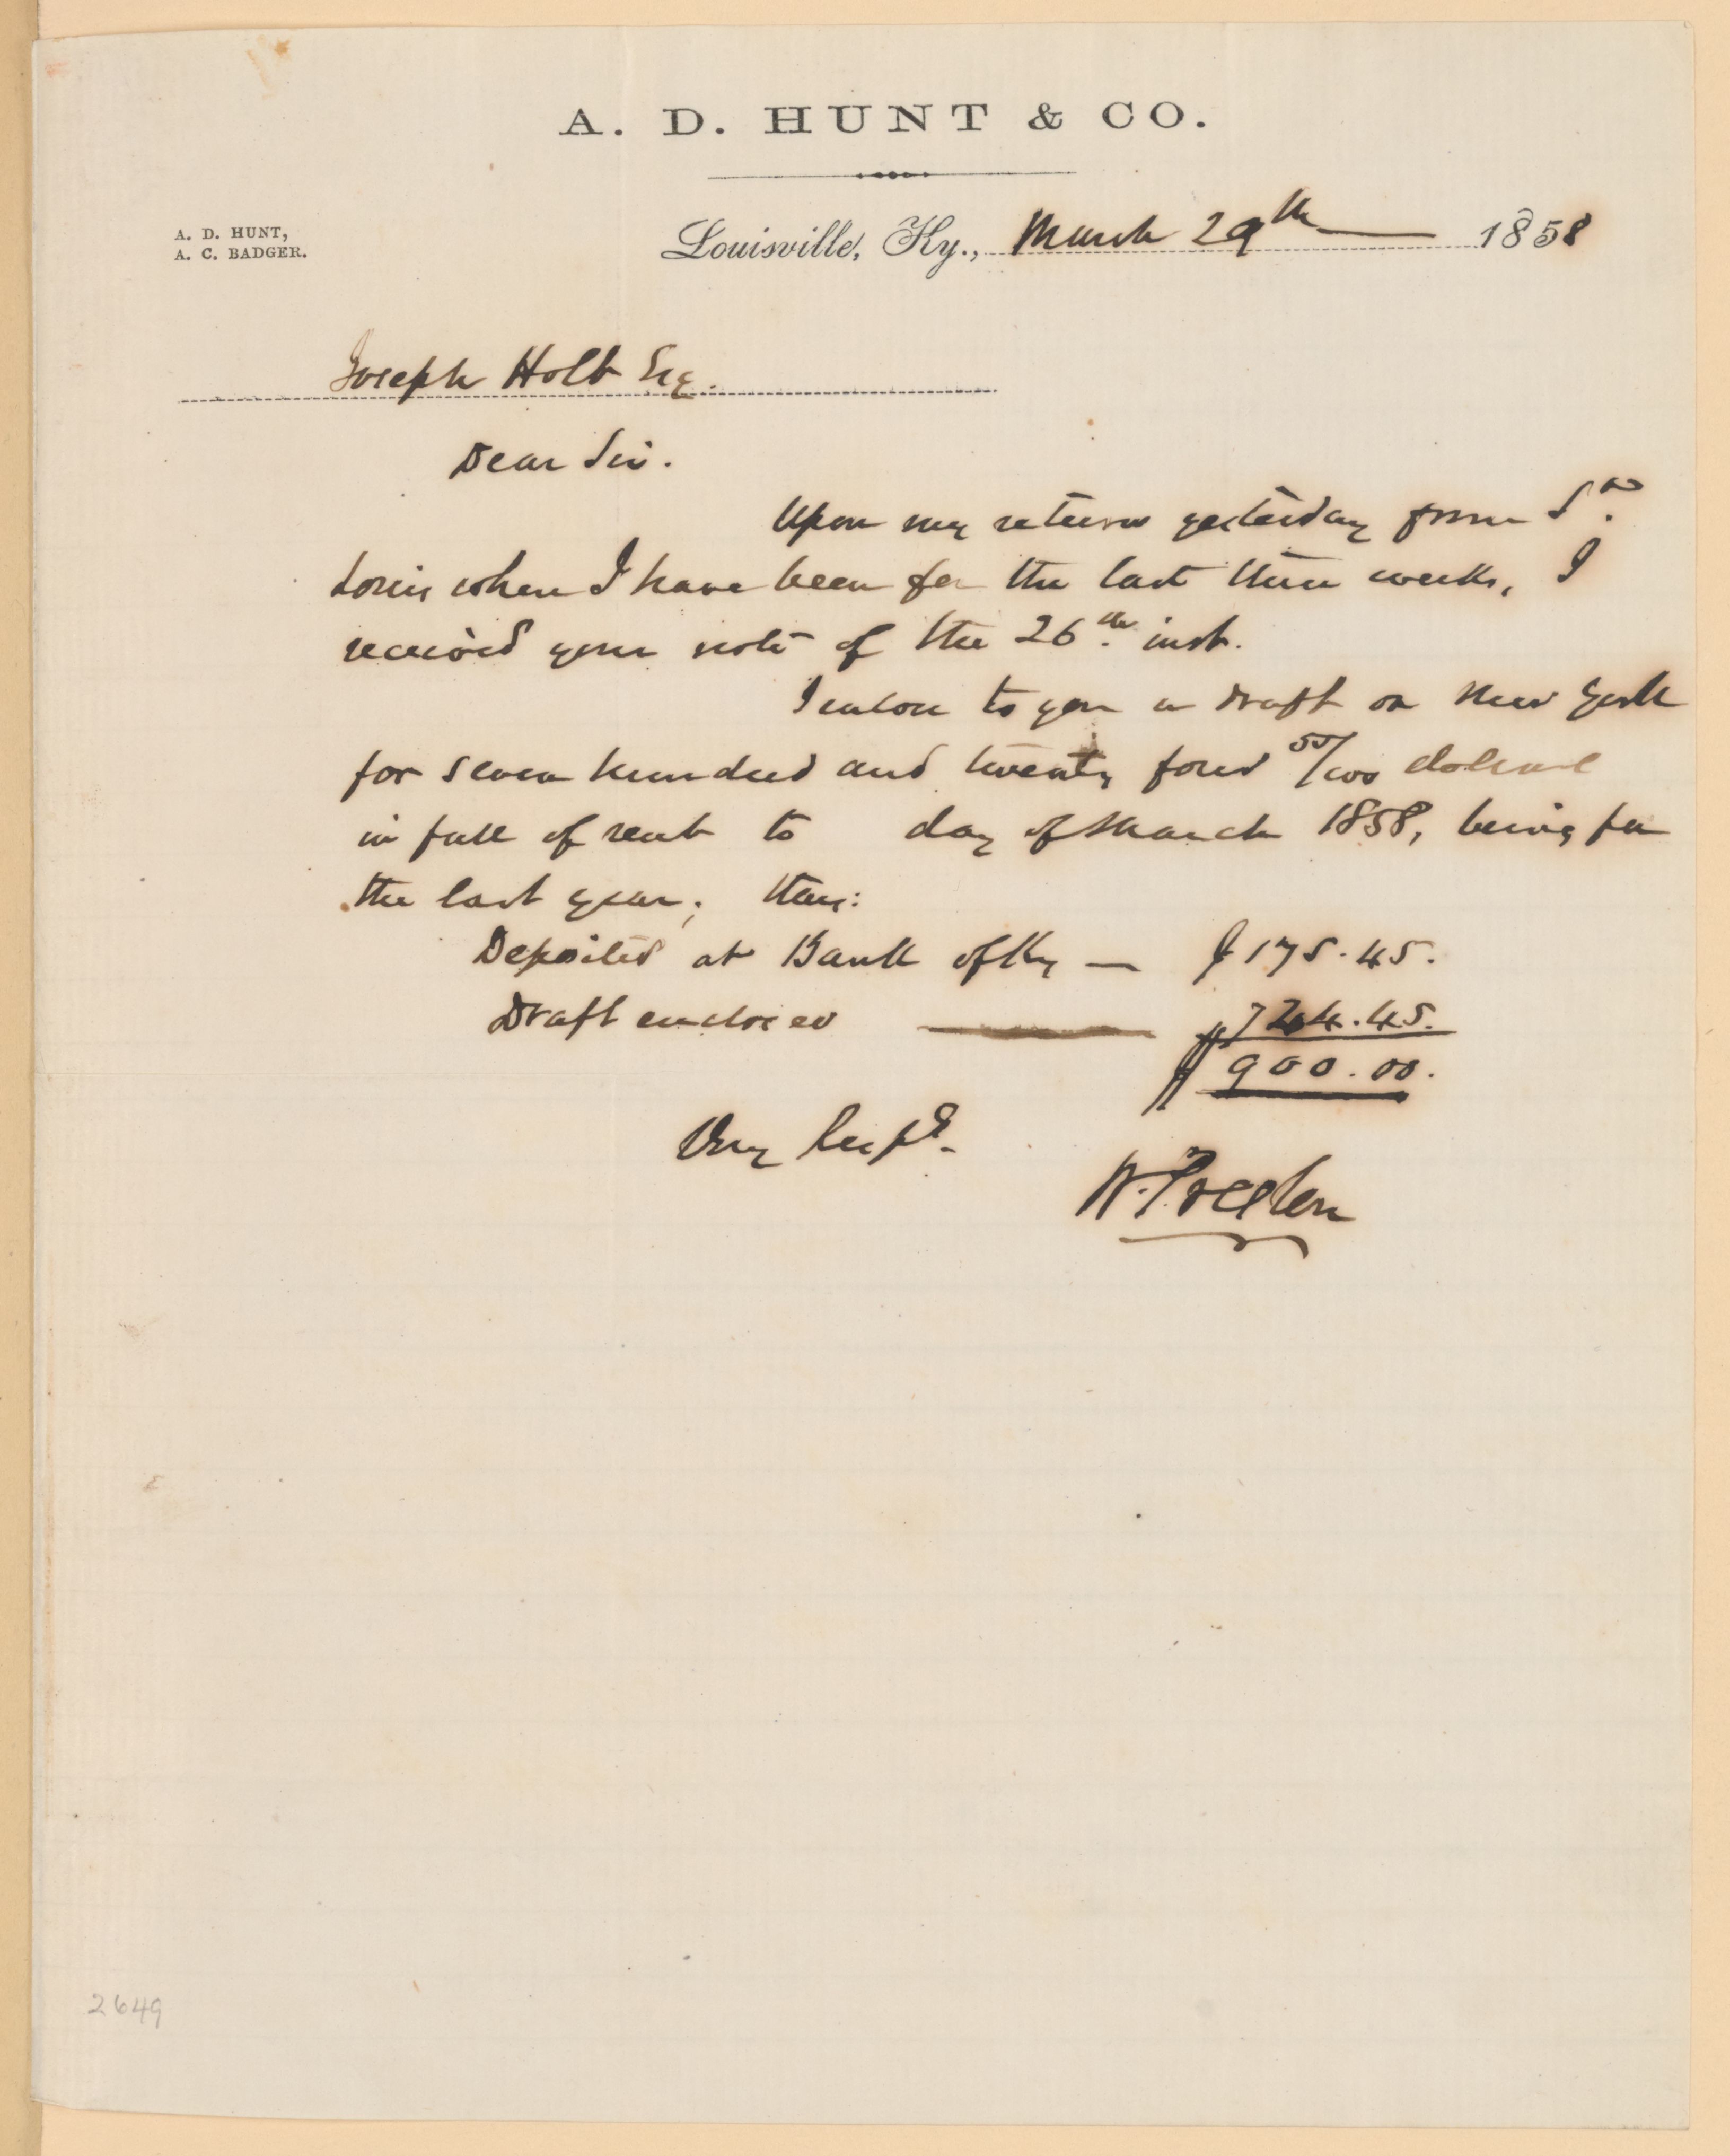 A. D. HUNT & CO.
A. D. HUNT,
A. C. BADGER.
Louisville, Ky., March 29th 1858
Joseph Holt Esq.
Dear Sir.
Upon my return yesterday from St.
Louis where I have been for the last three weeks, I
received your note of the 26th. inst.
I enclose to you a draft on New York
for seven hundred and twenty four 55/100 dollars
in full of rent to day of March 1858, being for
the last year; thus:
Deposited at Bank of Ky — $175.45.
Draft enclosed — $724.45.
$900.00.
Very Respt.
W. Preston
2649